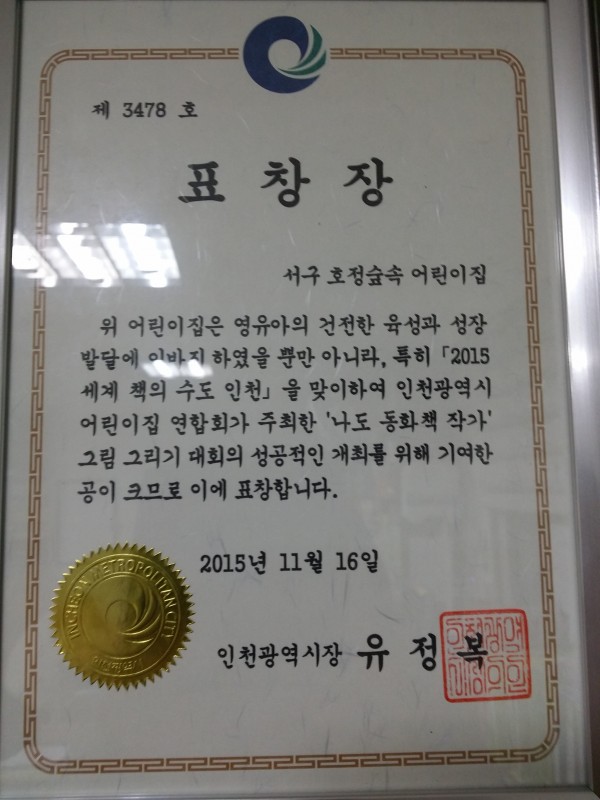 제 3478 호
표 창 장
서구 호정숲속 어린이집
위 어린이집은 영유아의 건전한 육성과 성장
발달에 이바지 하였을 뿐만 아니라, 특히 「2015
세계 책의 수도 인천」을 맞이하여 인천광역시
어린이집 연합회가 주최한 '나도 동화책 작가'
그림 그리기 대회의 성공적인 개최를 위해 기여한
공이 크므로 이에 표창합니다.
2015년 11월 16일
INCHEON METROPOLITAN CITY
인천광역시
인천광역시장 유 정 복